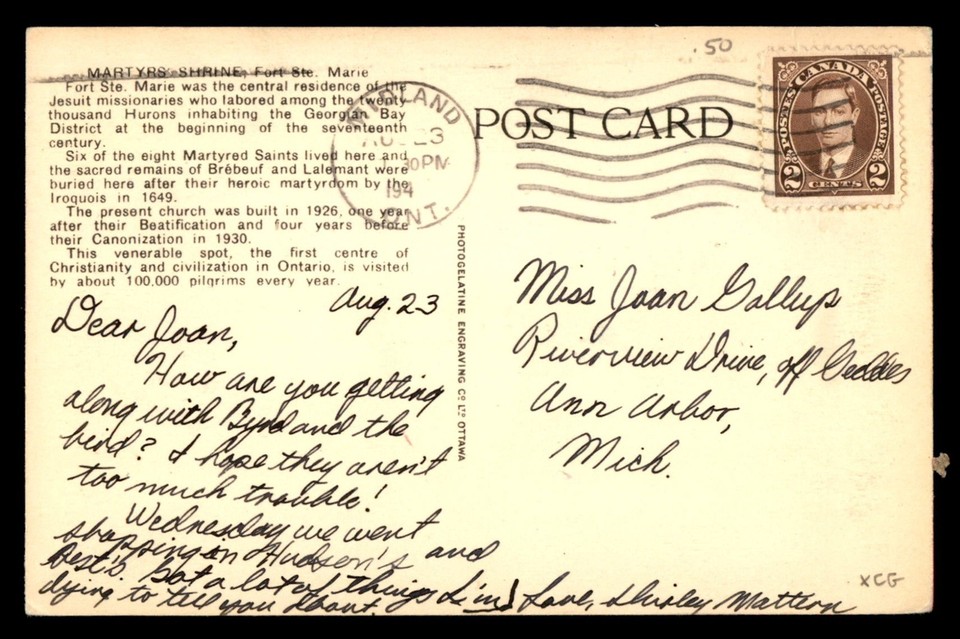 .50
MARTYRS SHRINE, Fort Ste. Marie
Fort Ste. Marie was the central residence of the
Jesuit missionaries who labored among the twenty
thousand Hurons inhabiting the Georgian Bay
District at the beginning of the seventeenth
century.
Six of the eight Martyred Saints lived here and
the sacred remains of Brébeuf and Lalemant were
buried here after their heroic martyrdom by the
Iroquois in 1649.
The present church was built in 1926, one year
after their Beatification and four years before
their Canonization in 1930.
This venerable spot, the first centre of
Christianity and civilization in Ontario, is visited
by about 100,000 pilgrims every year.
MIDLAND
AUG 23
30 PM
194
ONT.
POST CARD
POSTES CANADA POSTAGE
2 CENTS 2
PHOTOGELATINE ENGRAVING CO LTD OTTAWA
Aug. 23
Dear Joan,
How are you getting
along with Byrd and the
bird? I hope they aren't
too much trouble!
Wednesday we went
shopping in Hudson's and
Best's. Got a lot of things I'm
dying to tell you about.
Love, Shirley Mattern
Miss Joan Gallup
Riverview Drive, off Geddes
Ann Arbor,
Mich.
XCG